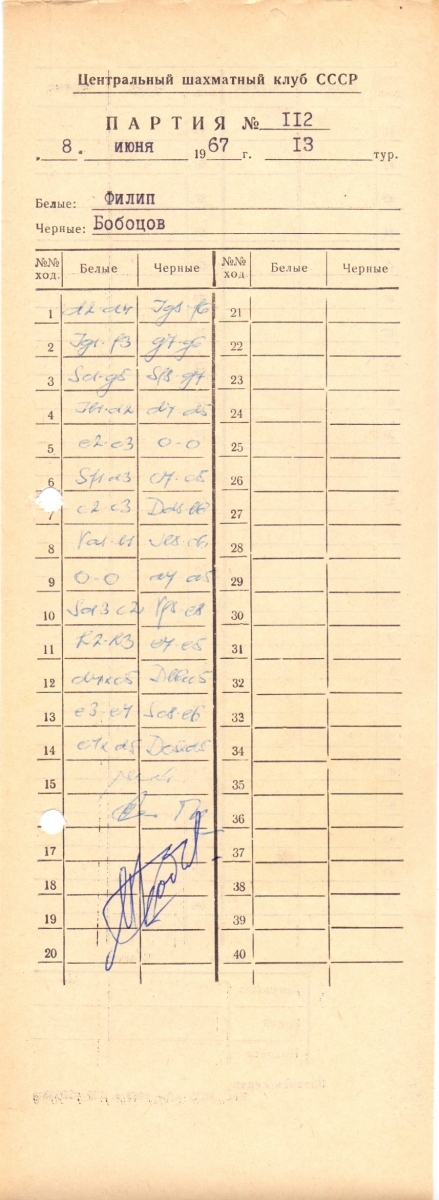 Центральный шахматный клуб СССР
ПАРТИЯ № 112
„ 8 „ июня 1967 г. 13 тур.
Белые: Филип
Черные: Бобоцов
№№ ход. Белые Черные №№ ход. Белые Черные
1 d2-d4 Jg8-f6 21
2 Jg1-f3 g7-g6 22
3 Sc1-g5 Sf8-g7 23
4 Jb1-d2 d7-d5 24
5 e2-e3 0-0 25
6 Sf1-d3 c7-c5 26
7 c2-c3 Dd8-b6 27
8 Va1-b1 Jb8-c6 28
9 0-0 a7-a5 29
10 Sd3-c2 Vf8-e8 30
11 h2-h3 e7-e5 31
12 d4xc5 Db6xc5 32
13 e3-e4 Sc8-e6 33
14 e4xd5 Dc5xd5 34
15 35
36
17 37
18 38
19 39
20 40